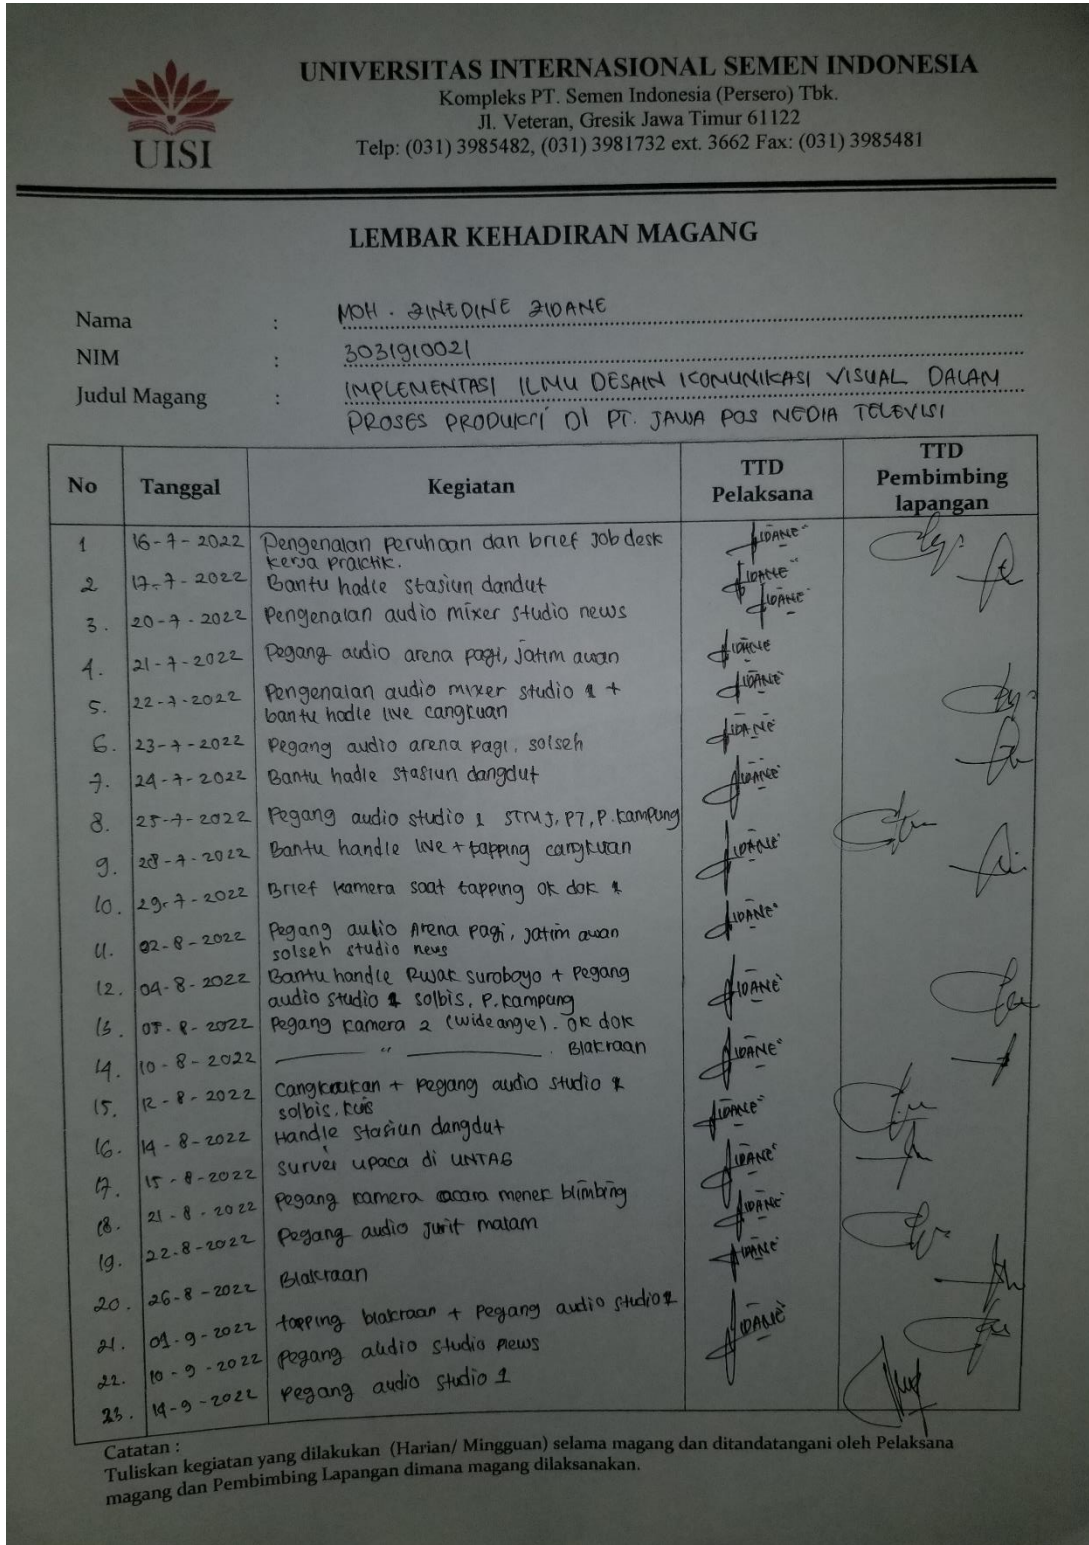 UISI
UNIVERSITAS INTERNASIONAL SEMEN INDONESIA
Kompleks PT. Semen Indonesia (Persero) Tbk.
Jl. Veteran, Gresik Jawa Timur 61122
Telp: (031) 3985482, (031) 3981732 ext. 3662 Fax: (031) 3985481
LEMBAR KEHADIRAN MAGANG
Nama : MOH. ZINEDINE ZIDANE
NIM : 3031910021
Judul Magang : IMPLEMENTASI ILMU DESAIN KOMUNIKASI VISUAL DALAM
PROSES PRODUKSI DI PT. JAWA POS MEDIA TELEVISI
No Tanggal Kegiatan TTD Pelaksana TTD Pembimbing lapangan
1 16-7-2022 Pengenalan peruhaan dan brief Job desk ZIDANE
kerja praktik.
2 17-7-2022 Bantu hadle stasiun dandut ZIDANE
3. 20-7-2022 Pengenalan audio mixer studio news ZIDANE
4. 21-7-2022 Pegang audio arena pagi, jatim awan ZIDANE
5. 22-7-2022 Pengenalan audio mixer studio 1 + ZIDANE
bantu hadle live cangkuan
6. 23-7-2022 Pegang audio arena pagi, solseh ZIDANE
7. 24-7-2022 Bantu hadle stasiun dangdut ZIDANE
8. 25-7-2022 Pegang audio studio 1 STMJ, P7, P. Kampung
9. 28-7-2022 Bantu handle live + tapping cangkuan ZIDANE
10. 29-7-2022 Brief kamera saat tapping ok dok
11. 02-8-2022 Pegang audio Arena pagi, jatim awan ZIDANE
solseh studio news
12. 04-8-2022 Bantu handle Rujak suroboyo + Pegang ZIDANE
audio studio 1 solbis, P. Kampung
13. 05-8-2022 Pegang kamera 2 (wide angle). Ok dok
14. 10-8-2022 " . Blakraan ZIDANE
15. 12-8-2022 Cangkrukan + Pegang audio studio 1 ZIDANE
solbis, kuis
16. 14-8-2022 Handle stasiun dangdut
17. 15-8-2022 Survei upaca di UNTAG ZIDANE
18. 21-8-2022 Pegang kamera acara menek blimbing ZIDANE
19. 22-8-2022 Pegang audio jurit malam ZIDANE
20. 26-8-2022 Blakraan
21. 01-9-2022 tapping blakraan + Pegang audio studio 1 ZIDANE
22. 10-9-2022 Pegang audio studio news
23. 14-9-2022 Pegang audio studio 1
Catatan :
Tuliskan kegiatan yang dilakukan (Harian/ Mingguan) selama magang dan ditandatangani oleh Pelaksana
magang dan Pembimbing Lapangan dimana magang dilaksanakan.